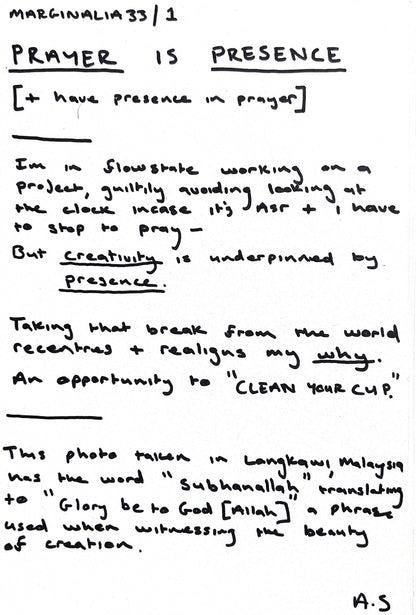 MARGINALIA 33/1
PRAYER IS PRESENCE
[+ have presence in prayer]
Im in flowstate working on a
project, guiltily avoiding looking at
the clock incase it's Asr + I have
to stop to pray –
But creativity is underpinned by
presence.
Taking that break from the world
recentres + realigns my why.
An opportunity to "CLEAN YOUR CUP."
This photo taken in Langkawi, Malaysia
has the word "Subhanallah", translating
to "Glory be to God [Allah]" a phrase
used when witnessing the beauty
of creation.
A.S